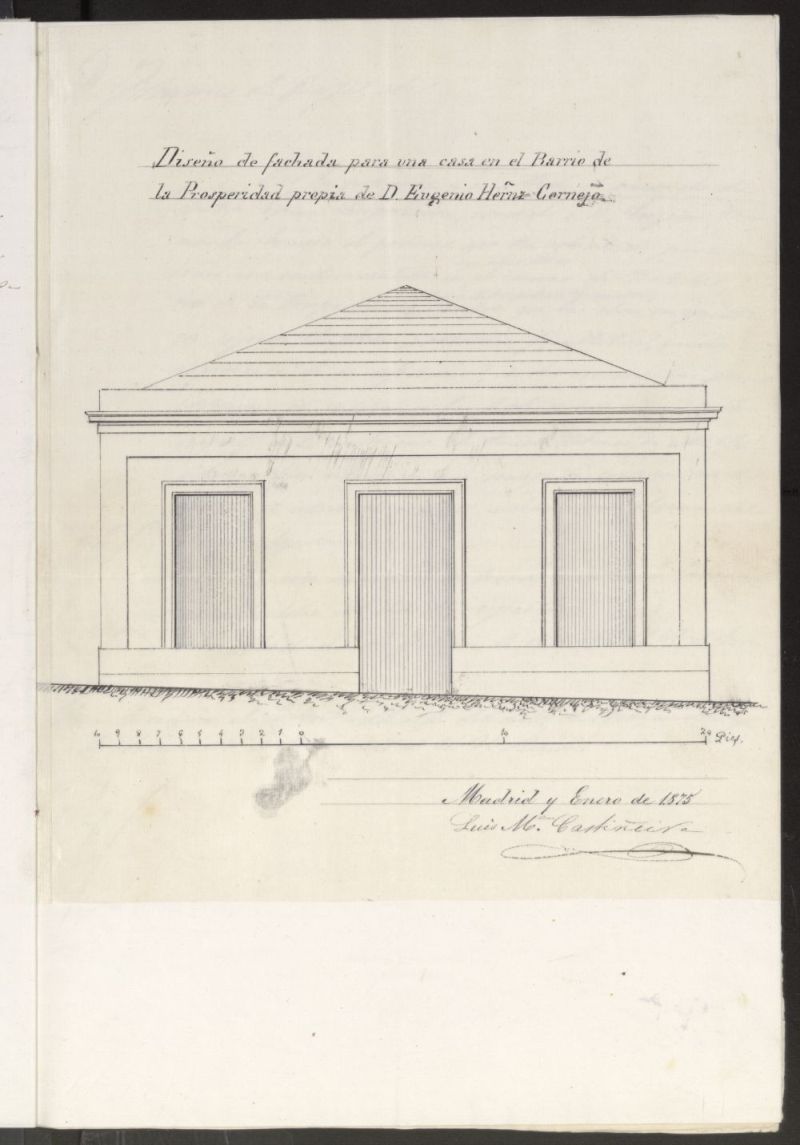 Diseño de fachada para una casa en el Barrio de
la Prosperidad propia de D. Eugenio Herñz Cornejo.
10 9 8 7 6 5 4 3 2 1 0 10 20 Pies.
Madrid y Enero de 1875
Luis Mª Castiñeira